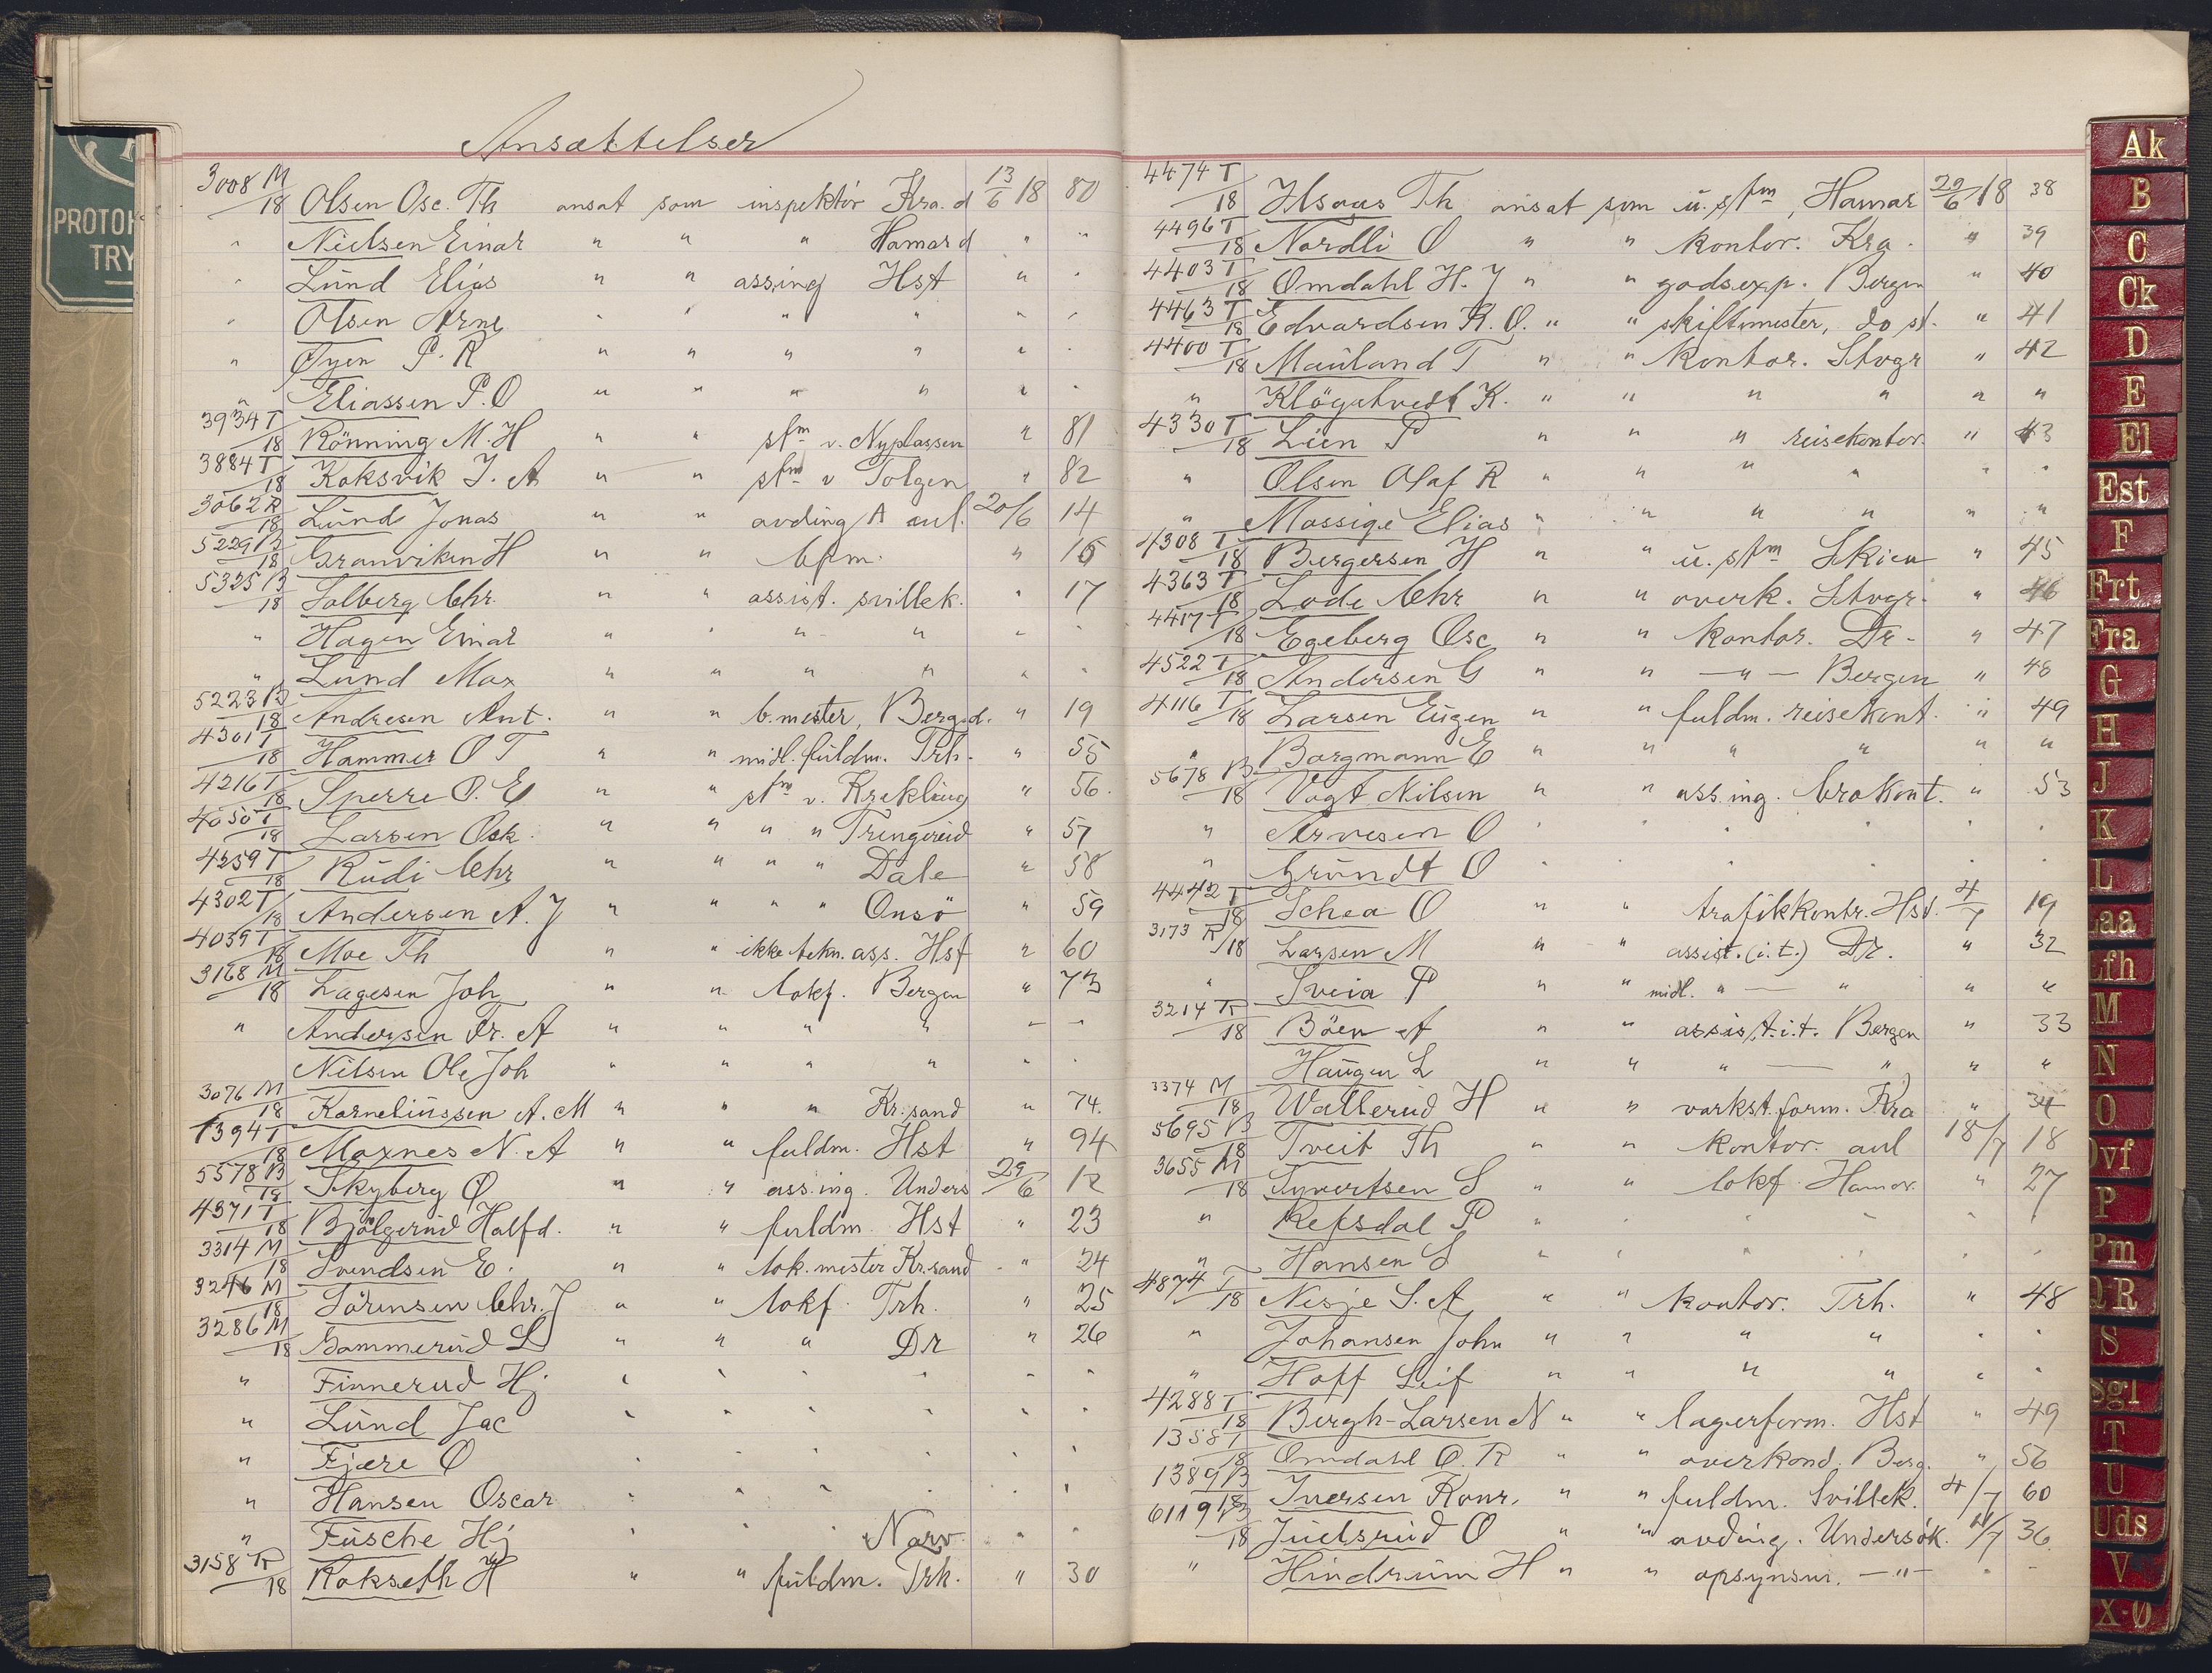 Ansættelser
PROTO
TRY
3008 M/18 Olsen Osc. Th ansat som inspektör Kra. d 13/6 18 80
" Nielsen Einar " " " Hamar d " "
" Lund Elias " " ass.ing Hst " "
" Olsen Arne " " " " " "
" Øyen P. R " " " " " "
" Eliassen P. O " " " " " "
3934 T/18 Rönning M. H " " stm v. Nyplassen " 81
3884 T/18 Koksvik J. A " " stm v Tolgen " 82
3062 R/18 Lund Jonas " " avding A anl. 20/6 14
5229 B/18 Granviken H " " bfm. " 16
5325 B/18 Solberg Chr. " " assist. svillek. " 17
" Hagen Einar " " " " " "
" Lund Max " " " " " "
5223 B/18 Andresen Ant. " " b.mester, Berg.d. " 19
4301 T/18 Hammer O T " " midl. fuldm. Trh. " 55
4216 T/18 Sperre O. E " " stm v. Krekling " 56.
4050 T/18 Larsen Osk. " " " " Trengereid " 57
4259 T/18 Rudi Chr " " " " Dale " 58
4302 T/18 Andersen A. J " " " " Onsö " 59
4039 T/18 Moe Th " " ikke tekn. ass. Hst " 60
3168 M/18 Lagesen Joh " " lokf. Bergen " 73
" Andersen Fr. A " " " " " "
Nilsen Ole Joh " " " " " "
3076 M/18 Korneliussen A. M " " " Kr.sand " 74.
1394 T/18 Moxnes N. A " " fuldm. Hst " 94
5578 B/18 Skyberg O " " ass.ing. Unders 29/6 12
4371 T/18 Bjölgerud Halfd. " " fuldm. Hst " 23
3314 M/18 Svendsen E. " " lok.mester Kr.sand " 24
3246 M/18 Sörensen Chr. J " " lokf. Trh. " 25
3286 M/18 Gommerud L " " " Dr " 26
" Finnerud Hj " " " " " "
" Lund Jac " " " " " "
" Fjære O " " " " "
" Hansen Oscar " " " " " "
" Fusche Hj " " " Narv. " "
3158 R/18 Rokseth H " " fuldm. Trh. " 30
4474 T/18 Ilsaas Th ansat som u. stm, Hamar 29/6 18 38
4496 T/18 Nordli O " " kontor. Kra. " 39
4403 T/18 Omdahl H. J " " godsexp. Bergen " 40
4463 T/18 Edvardsen K. O. " " skiftemester, do st. " 41
4400 T/18 Mauland T " " kontor. Stvgr " 42
" Klögetvedt K. " " " " " "
4330 T/18 Lien P " " " reisekontor. " 43
" Olsen Olaf R " " " " " "
" Mossige Elias " " " " " "
4308 T/18 Bergersen H " " u. stm Skien " 45
4363 T/18 Lode Chr " " overk. Stvgr. " 46
4417 T/18 Egeberg Osc " " kontor. Dr. " 47
4522 T/18 Andersen G " " —"— Bergen " 48
4116 T/18 Larsen Eugen " " fuldm. reisekont. " 49
" Borgmann E " " " " " "
5678 B/18 Vogt Nilsen " " ass.ing. brokont. " 53
" Arvesen O " " " " "
" Grundt O " " " " "
4442 T/18 Schea O " " trafikkontr. Hst. 4/7 19
3173 R/18 Larsen M " " assist. (i.t.) Dr. " 32
" Sveia P " " midl. " — " " "
3214 R/18 Böen A " " assist. i.t. Bergen " 33
Haugen L " " " — " " "
3374 M/18 Wallerud H " " verkst.form. Kra " 34
5695 B/18 Tveit Th " " kontor. anl 18/7 18
3655 M/18 Syvertsen S " " lokf. Hamar. " 27
" Refsdal P " " " " " "
" Hansen S " " " " " "
4874 T/18 Nesje S. A " " kontor. Trh. " 48
" Johansen John " " " " " "
" Hoff Leif " " " " " "
4288 T/18 Bergh-Larsen N " " lagerform. Hst " 49
1358 T/18 Omdahl O. R " " overkond. Berg. " 56
1389 B/18 Iversen Konr. " " fuldm. Svillek. 4/7 60
6119 B/18 Juelsrud O " " avding. Undersök. 11/7 36.
" Hindrum H " " opsynsm. —"— " "
Ak
B
C
Ck
D
E
El
Est
F
Frt
Fra
G
H
J
K
L
Laa
Lfh
M
N
O
Ovf
P
Pm
QR
S
Sgl
T
U
Uds
V
X-Ø